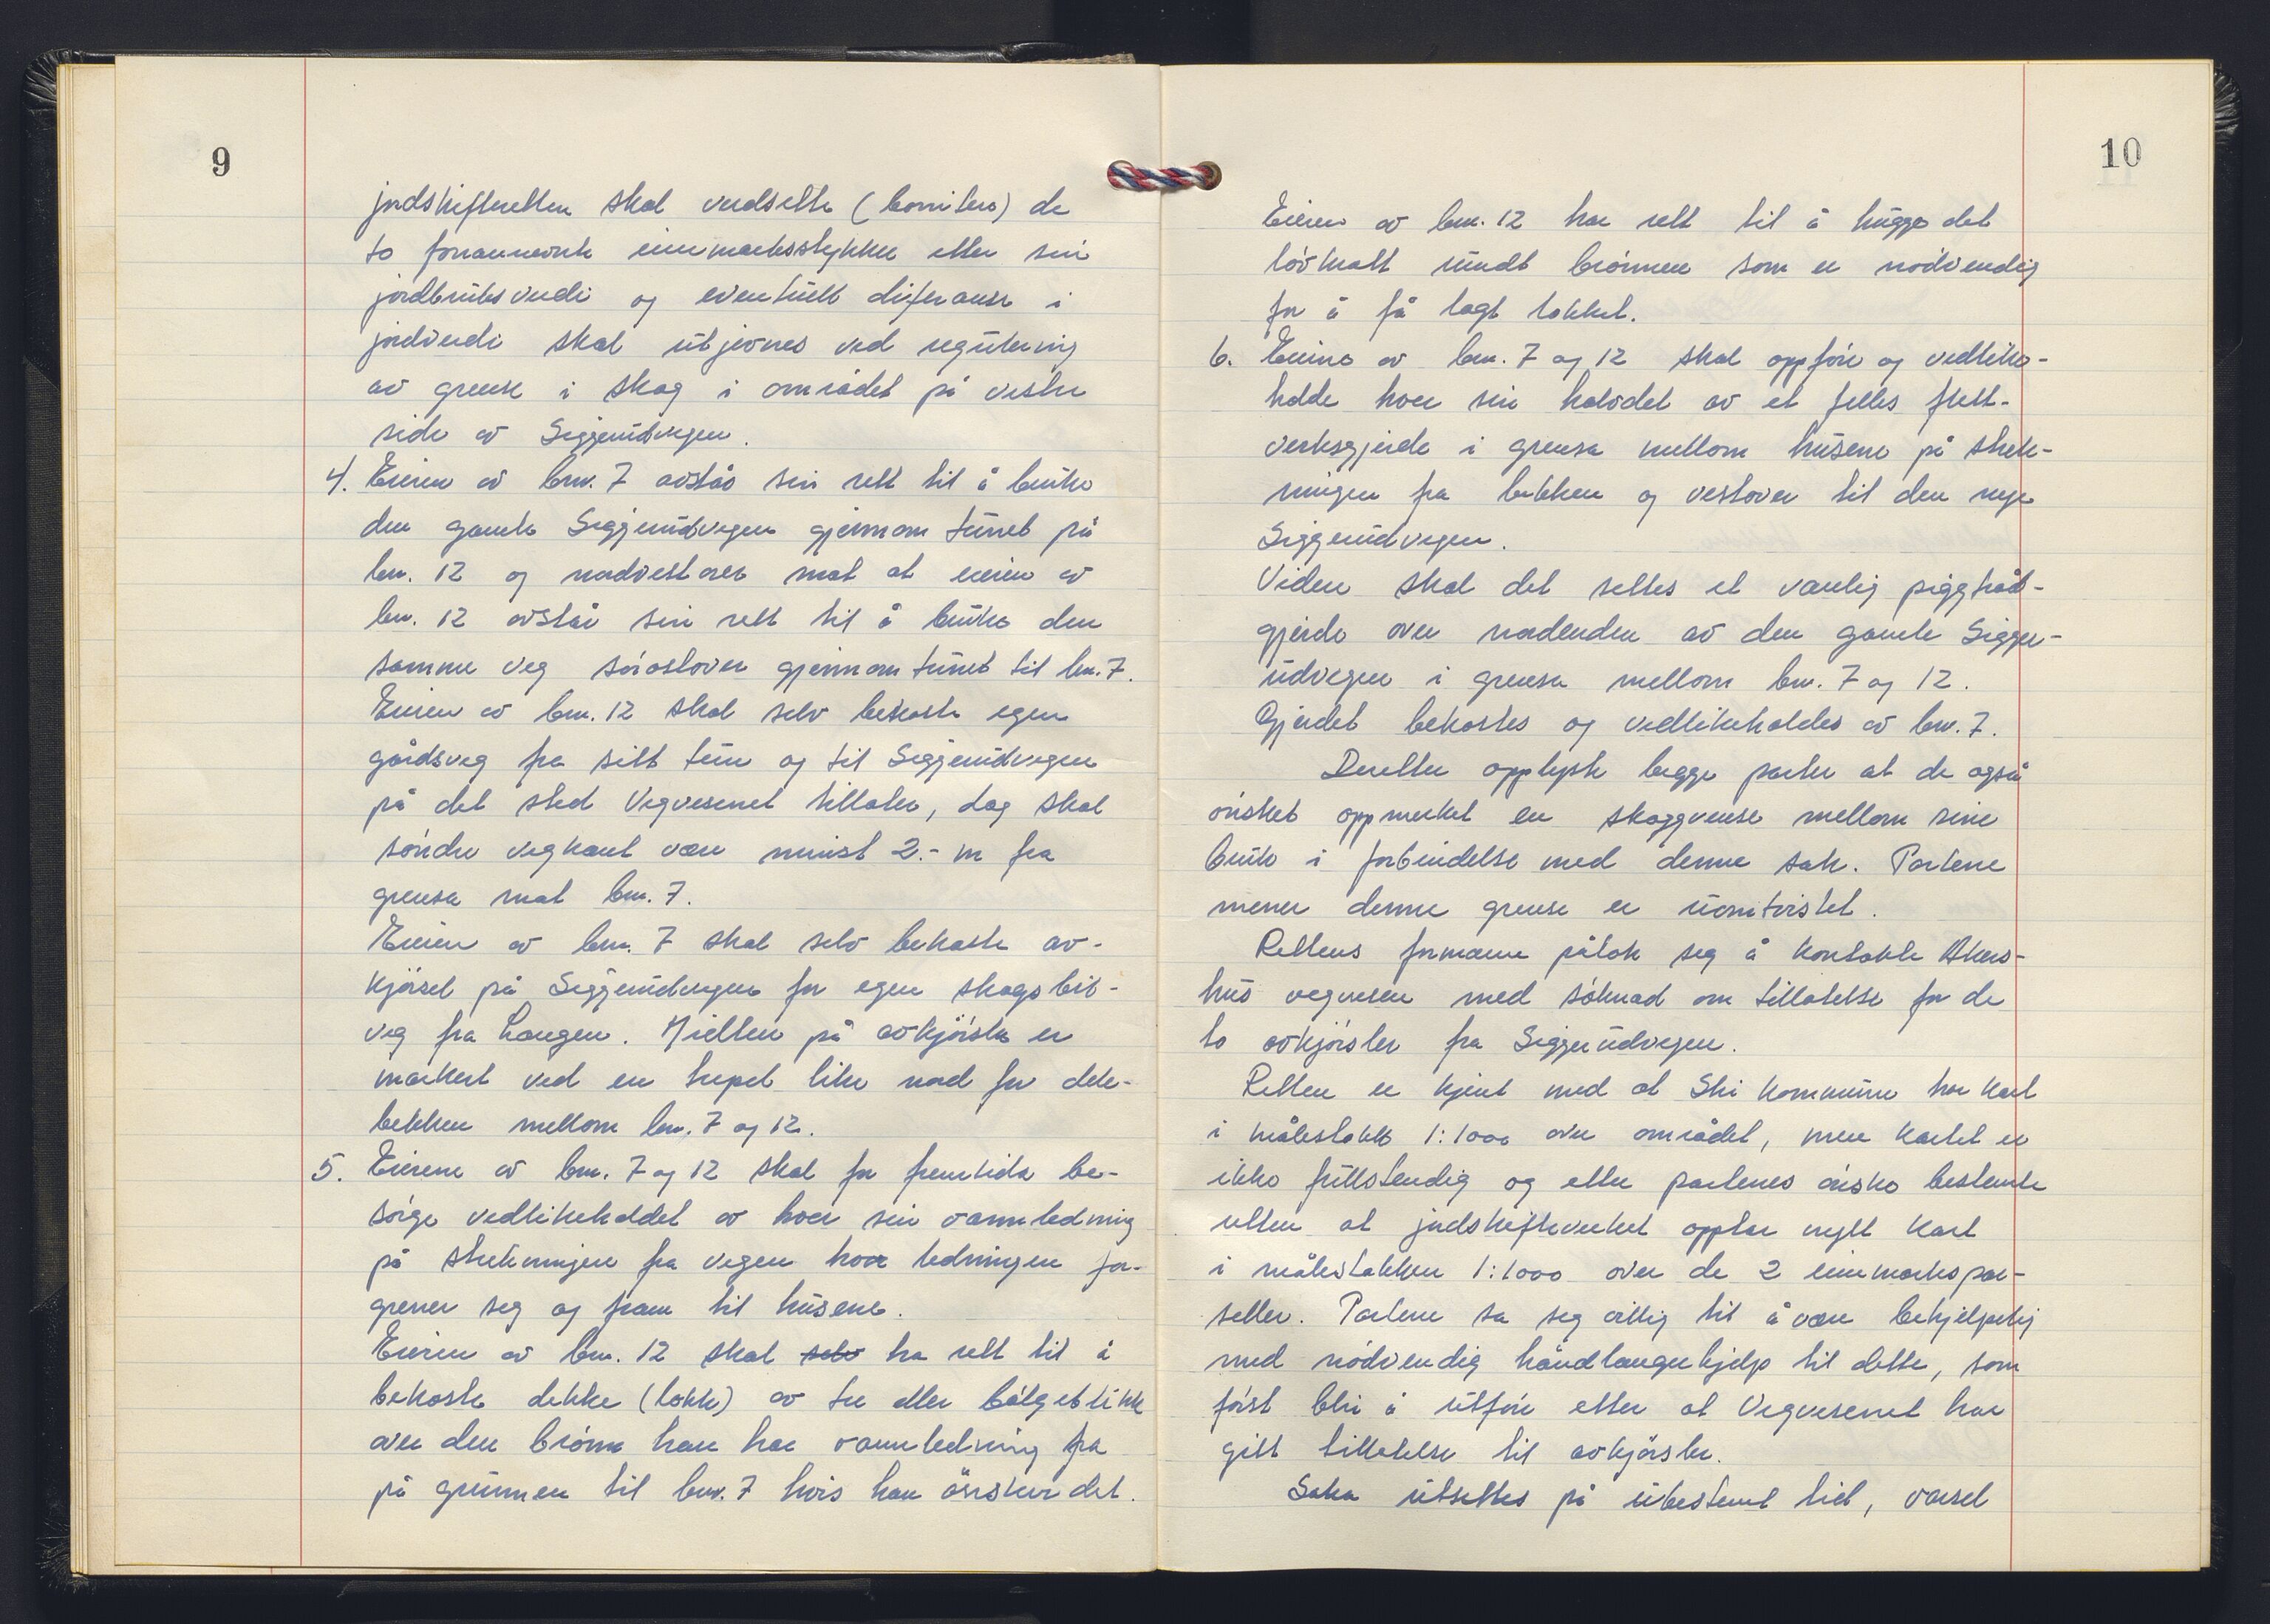 9
jordskifteretten skal verdsette (bonitere) de
to forannevnte innmarksstykker etter sin
jordbruksverdi og eventuell diferanse i
jordverdi skal utjevnes ved regulering
av grense i skog i området på vestre
side av Siggerudvegen.
4. Eieren av bnr. 7 avstår sin rett til å bruke
den gamle Siggerudvegen gjennom tunet på
bnr. 12 og nordvestover mot at eieren av
bnr. 12 avstår sin rett til å bruke den
samme veg sørøstover gjennom tunet til bnr. 7.
Eieren av bnr. 12 skal selv bekoste egen
gårdsveg fra sitt tun og til Siggerudvegen
på det sted Vegvesenet tillater, dog skal
søndre vegkant være minst 2.- m fra
grensa mot bnr. 7.
Eieren av bnr. 7 skal selv bekoste av-
kjørsel på Siggerudvegen for egen skogsbil-
veg fra Langen. Midten på avkjørsla er
markert ved en trepel like nord for dele-
bekken mellom bnr. 7 og 12.
5. Eierene av bnr. 7 og 12 skal for framtida be-
sørge vedlikeholdet av hver sin vannledning
på strekningen fra vegen hvor ledningen for-
grener seg og fram til husene.
Eieren av bnr. 12 skal selv ha rett til å
bekoste dekke (lokk) av tre eller bølgeblikk
over den brønn han har vannledning fra
på grunnen til bnr. 7 hvis han ønsker det.
10
Eieren av bnr. 12 har rett til å hugge det
løvkratt rundt brønnen som er nødvendig
for å få lagt lokket.
6. Eierne av bnr. 7 og 12 skal oppføre og vedlike-
holde hver sin halvdel av et felles flett-
verksgjerde i grensa mellom husene på strek-
ningen fra bekken og vestover til den nye
Siggerudvegen.
Videre skal det settes et vanlig piggtråd-
gjerde over nordenden av den gamle Sigger-
udvegen i grensa mellom bnr. 7 og 12.
Gjerdet bekostes og vedlikeholdes av bnr. 7.
Deretter opplyste begge parter at de også
ønsket oppmerket en skoggrense mellom sine
bruk i forbindelse med denne sak. Partene
mener denne grense er uomtvistet.
Rettens formann påtok seg å kontakte Akers-
hus vegvesen med søknad om tillatelse for de
to avkjørsler fra Siggerudvegen.
Retten er kjent med at Ski kommune har kart
i målestokk 1:1000 over området, men kartet er
ikke fullstendig og etter partenes ønske bestemte
retten at jordskifteverket opptar nytt kart
i målestokken 1:1000 over de 2 innmarkspar-
seller. Partene sa seg villig til å være behjelpelig
med nødvendig håndlangerhjelp til dette, som
først blir å utføre etter at Vegvesenet har
gitt tillatelse til avkjørsler.
Saka utsettes på ubestemt tid, varsel